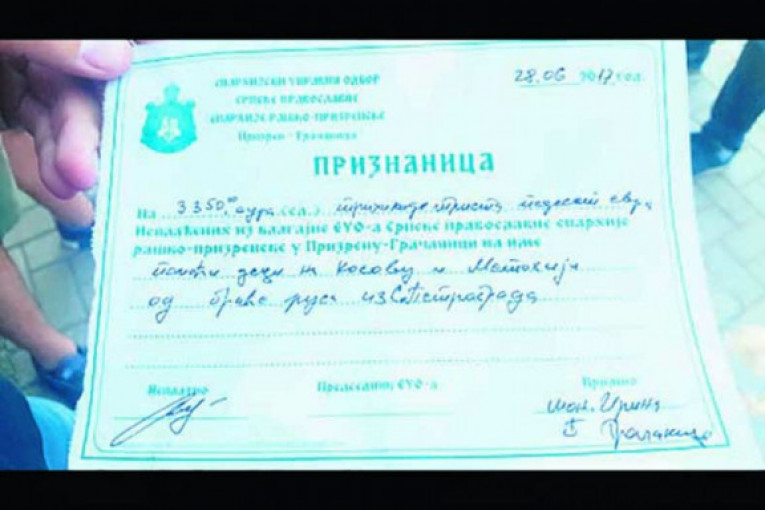 ЕПАРХИЈСКИ УПРАВНИ ОДБОР
СРПСКЕ ПРАВОСЛАВНЕ
ЕПАРХИЈЕ РАШКО-ПРИЗРЕНСКЕ
Призрен - Грачаница
28.06 2017 год.
ПРИЗНАНИЦА
На 3350,00 еура (сл.) три хиљаде триста педесет евра
Исплаћених из благајне ЕУО-а Српске православне епархије
рашко-призренске у Призрену-Грачаници на име
помоћи деци на Косову и Метохији
од браће руса из С. Петрограда
Исплатио Председник ЕУО-а Примио
мон. Ирина
Грачаница